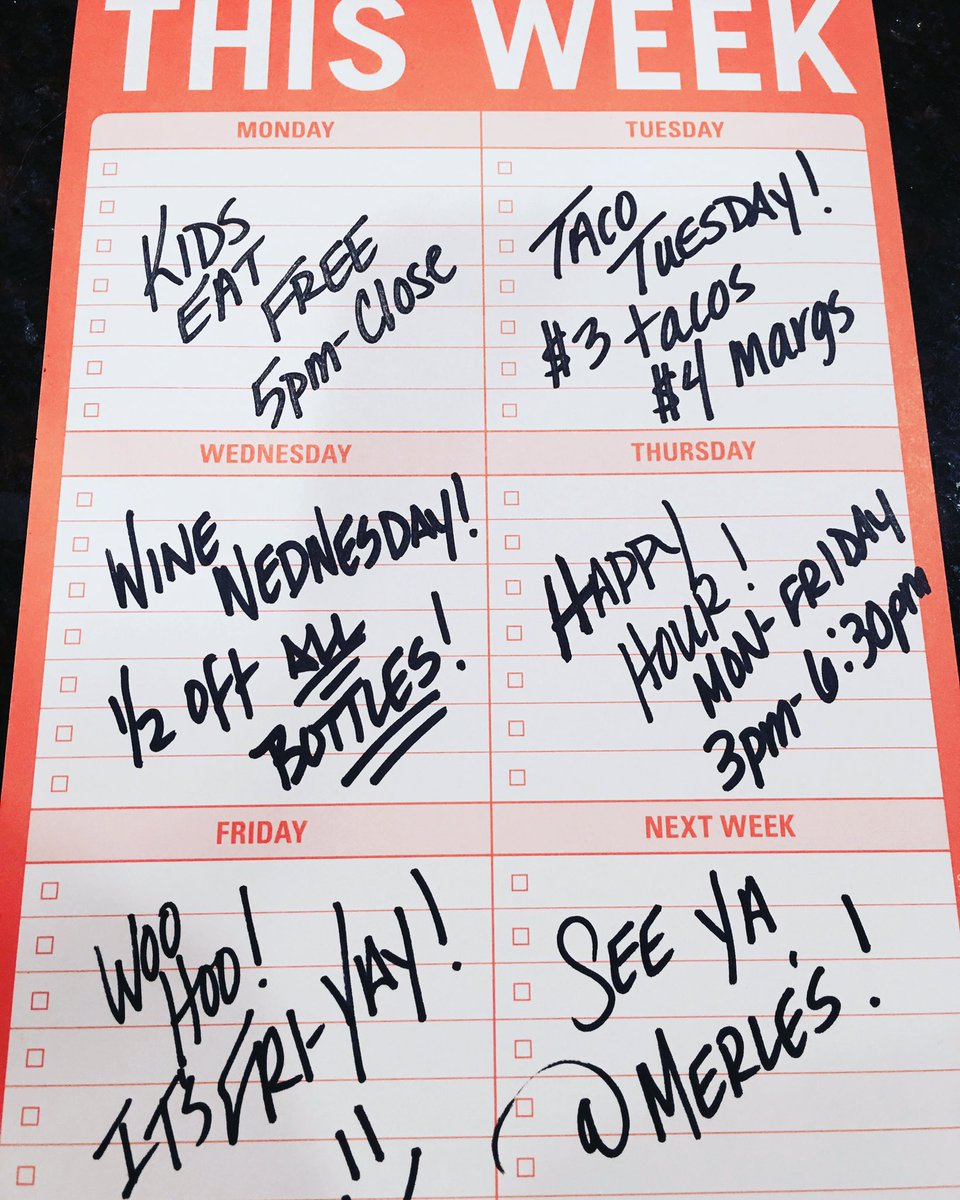 THIS WEEK
MONDAY
KIDS
EAT FREE
5pm-Close
TUESDAY
TACO
TUESDAY!
$3 tacos
$4 Margs
WEDNESDAY
WINE
WEDNESDAY!
1/2 off ALL
BOTTLES!
THURSDAY
HAPPY
HOUR!
MON-FRIDAY
3pm-6:30pm
FRIDAY
WOO
HOO!
IT'S FRI-YAY!
NEXT WEEK
SEE YA
@MERLE'S!